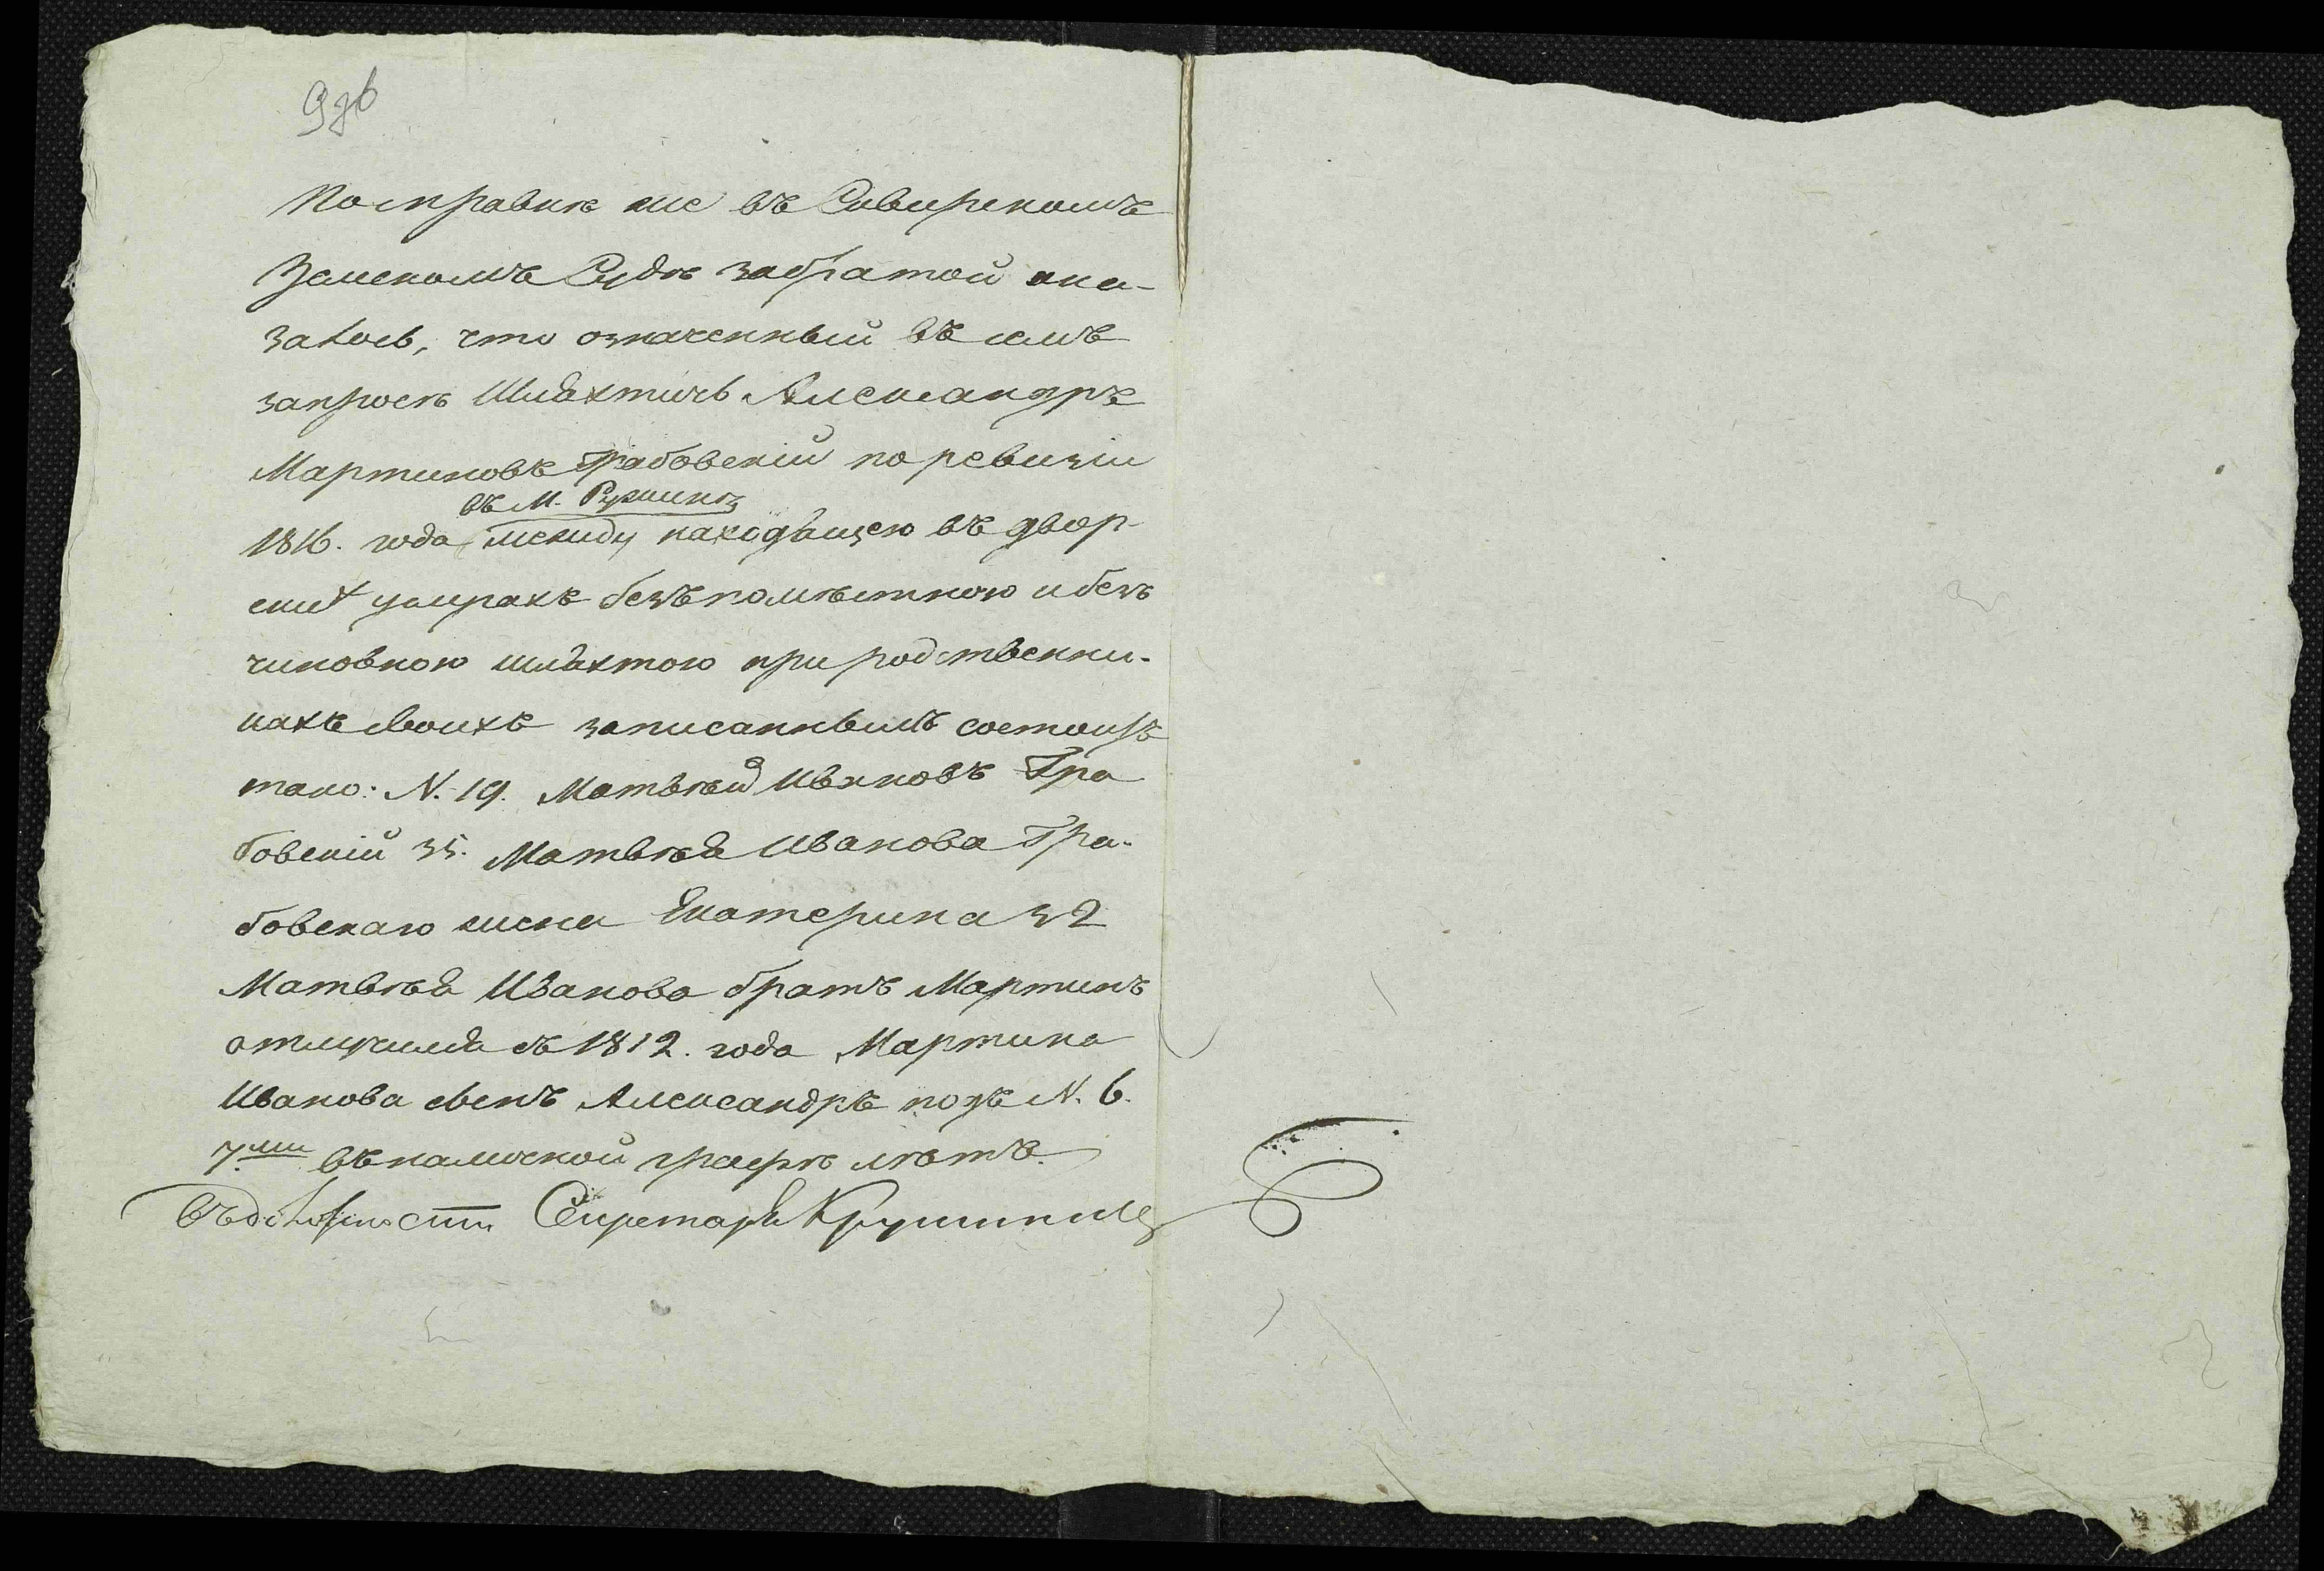 9зв
По справке же въ Сквирскомъ
Земскомъ Суде забратой ока-
залось, что означенный въ семъ
запросе Шляхтичь Александръ
Мартиновъ Грабовскій по ревизіи
въ М. Ружине
1816. года между находящею въ двор-
ских усирахъ безъпоместною и безъ
чиновною шляхтою при родственни-
кахъ своихъ записаннымъ состоитъ
тако: N. 19. Матвей Ивановъ Гра
бовскій 35. Матвея Иванова Гра-
бовскаго жена Екатерина 32
Матвея Иванова братъ Мартинъ
отлучился съ 1812. года Мартина
Иванова сынъ Александръ подъ N. 6.
7.ми въ камской графе летъ.
Въ должности Секретаря